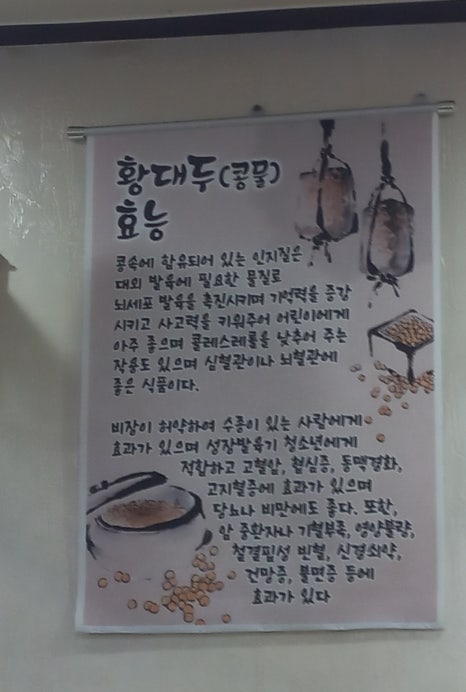 황대두(콩물)
효능
콩속에 함유되어 있는 인지질은
대외 발육에 필요한 물질로
뇌세포 발육을 촉진시키며 기억력을 증강
시키고 사고력을 키워주어 어린이에게
아주 좋으며 콜레스레롤을 낮추어 주는
작용도 있으며 심혈관이나 뇌혈관에
좋은 식품이다.
비장이 허약하여 수종이 있는 사람에게
효과가 있으며 성장발육기 청소년에게
적합하고 고혈압, 협심증, 동맥경화,
고지혈증에 효과가 있으며
당뇨나 비만에도 좋다. 또한,
암 중환자나 기혈부족, 영양불량,
철결핍성 빈혈, 신경쇠약,
건망증, 불면증 등에
효과가 있다